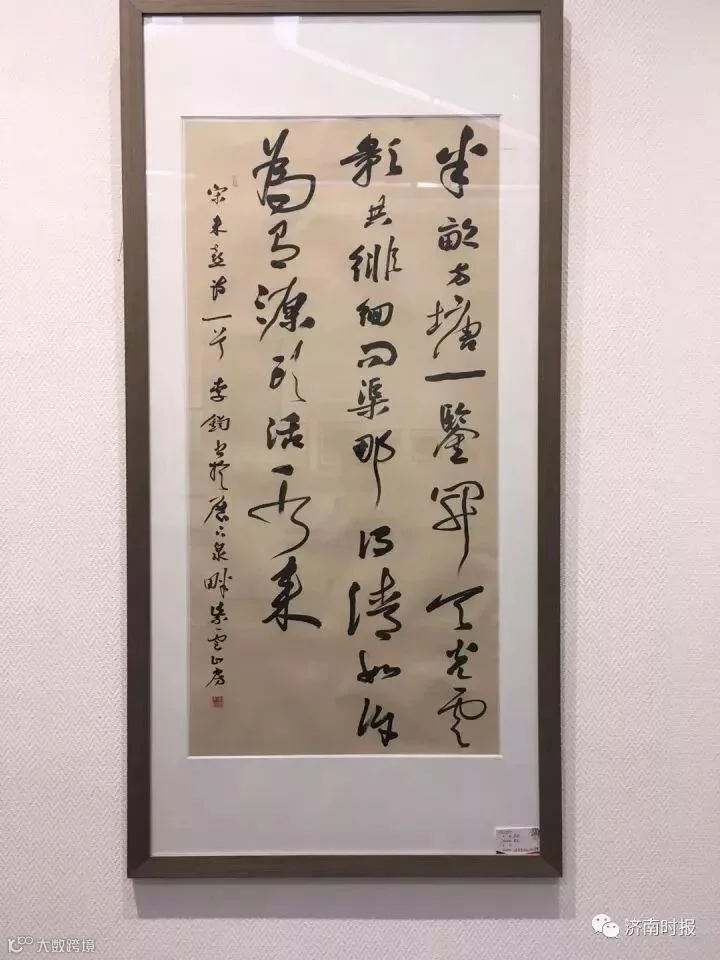 半畝方塘一鑒開天光雲
影共徘徊問渠那得清如許
為有源頭活水來
宋朱熹詩一首 李鈞書於歷下泉畔紫雲山房
济南时报
大数跨境